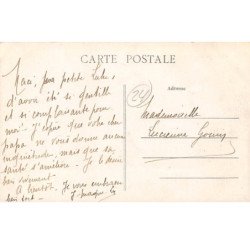 CARTE POSTALE
Merci, ma petite Lulu,
d'avoir été si gentille
et si complaisante pour
moi. J'espère que votre cher
papa ne vous donne aucune
inquiétude, mais que sa
santé s'améliore. Je le désire
bien vivement.
A bientôt. Je vous embrasse
bien fort.
Adresse
24
Mademoiselle
Lucienne